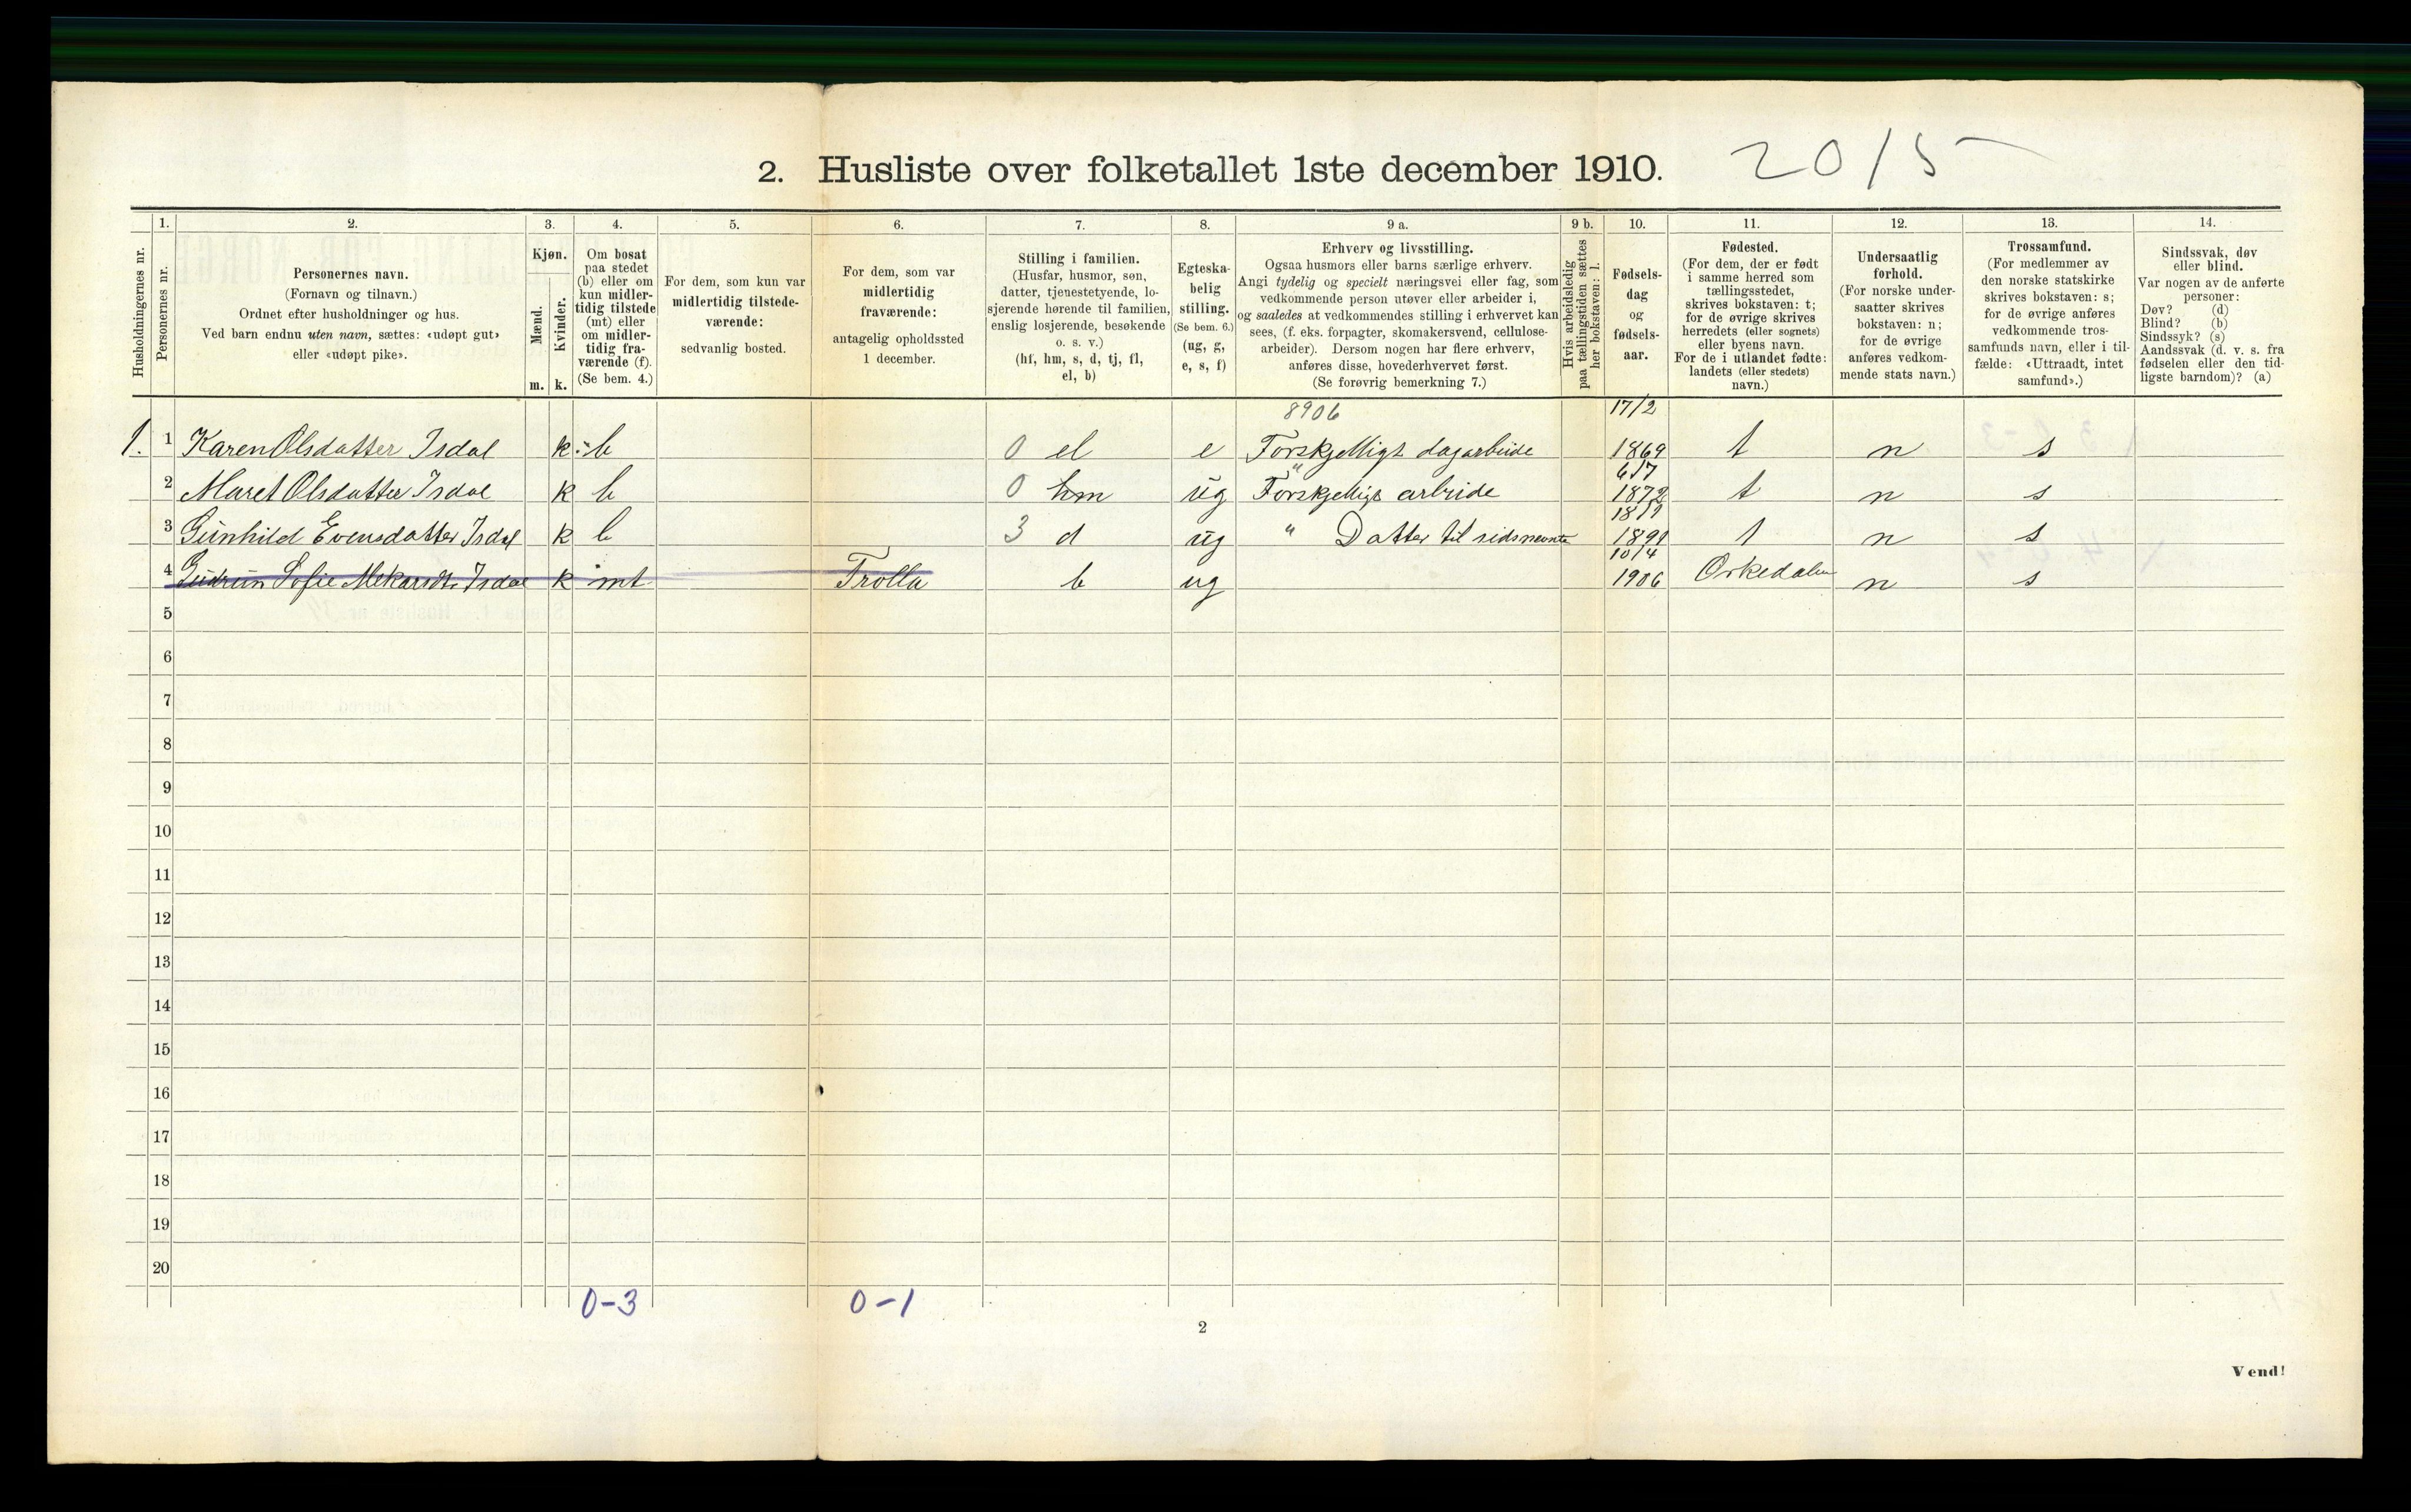 2. Husliste over folketallet 1ste december 1910. 2015
1. 2. 3. 4. 5. 6. 7. 8. 9 a. 9 b. 10. 11. 12. 13. 14.
Husholdningernes nr.
Personernes nr.
Personernes navn.
(Fornavn og tilnavn.)
Ordnet efter husholdninger og hus.
Ved barn endnu uten navn, sættes: «udøpt gut»
eller «udøpt pike».
Kjøn.
Mænd.
Kvinder.
m. k.
Om bosat
paa stedet
(b) eller om
kun midler-
tidig tilstede
(mt) eller
om midler-
tidig fra-
værende (f).
(Se bem. 4.)
For dem, som kun var
midlertidig tilstede-
værende:
sedvanlig bosted.
For dem, som var
midlertidig
fraværende:
antagelig opholdssted
1 december.
Stilling i familien.
(Husfar, husmor, søn,
datter, tjenestetyende, lo-
sjerende hørende til familien,
enslig losjerende, besøkende
o. s. v.)
(hf, hm, s, d, tj, fl,
el, b)
Egteska-
belig
stilling.
(Se bem. 6.)
(ug, g,
e, s, f)
Erhverv og livsstilling.
Ogsaa husmors eller barns særlige erhverv.
Angi tydelig og specielt næringsvei eller fag, som
vedkommende person utøver eller arbeider i,
og saaledes at vedkommendes stilling i erhvervet kan
sees, (f. eks. forpagter, skomakersvend, cellulose-
arbeider). Dersom nogen har flere erhverv,
anføres disse, hovederhvervet først.
(Se forøvrig bemerkning 7.)
Hvis arbeidsledig
paa tællingstiden sættes
her bokstaven: l.
Fødsels-
dag
og
fødsels-
aar.
Fødested.
(For dem, der er født
i samme herred som
tællingsstedet,
skrives bokstaven: t;
for de øvrige skrives
herredets (eller sognets)
eller byens navn.
For de i utlandet fødte:
landets (eller stedets)
navn.)
Undersaatlig
forhold.
(For norske under-
saatter skrives
bokstaven: n;
for de øvrige
anføres vedkom-
mende stats navn.)
Trossamfund.
(For medlemmer av
den norske statskirke
skrives bokstaven: s;
for de øvrige anføres
vedkommende tros-
samfunds navn, eller i til-
fælde: «Uttraadt, intet
samfund».)
Sindssvak, døv
eller blind.
Var nogen av de anførte
personer:
Døv? (d)
Blind? (b)
Sindssyk? (s)
Aandssvak (d. v. s. fra
fødselen eller den tid-
ligste barndom)? (a)
8906 17/2
1. 1 Karen Olsdatter Isdal k b 0 el e Forskjelligt dagarbeide 1869 t n s
6/7
2 Maret Olsdatter Isdal k b 0 hm ug Forskjelligt arbeide 1872 t n s
3 Gunhild Evensdatter Isdal k b 3 d ug " Datter til sidsnevnte 1891 t n s
10/4
4 Gudrun Sofie Isdal k mt Trolla b ug 1906 Orkedalen n s
5
6
7
8
9
10
11
12
13
14
15
16
17
18
19
20
0-3 0-1
2
Vend!